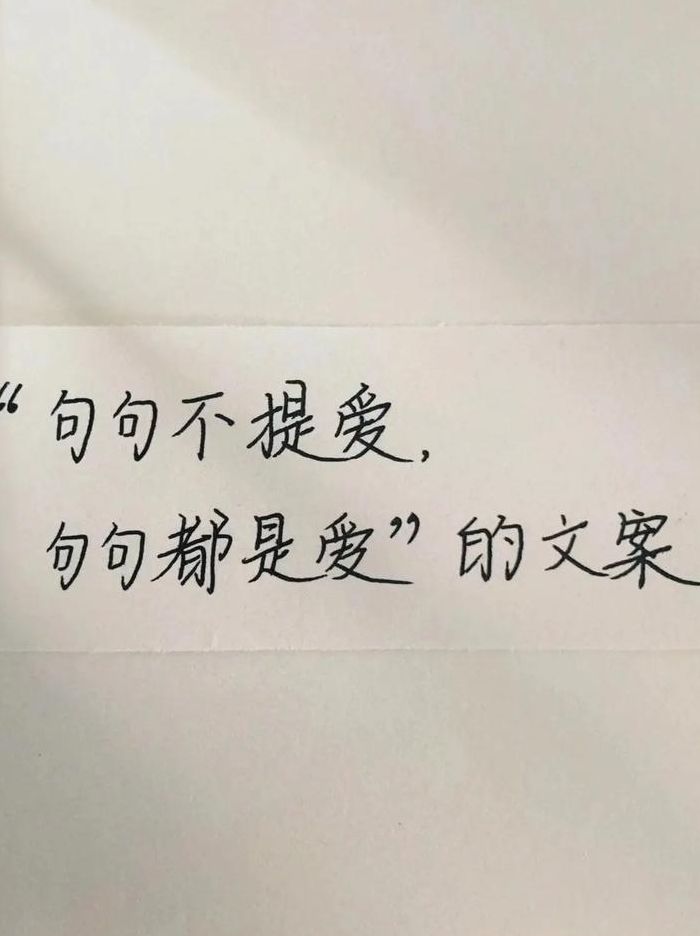 “句句不提爱,
句句都是爱”的文案